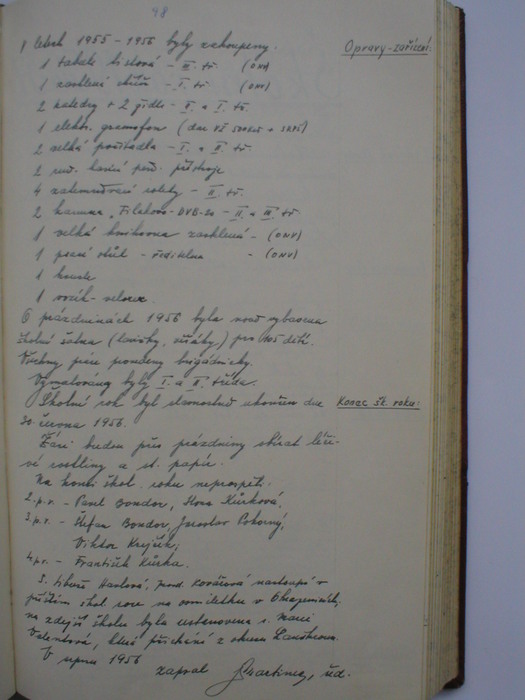 48
V letech 1955-1956 byly zakoupeny: Opravy-zařízení:
1 tabule lístková - III. tř. (ONV)
1 zasklená skříň - I. tř. (ONV)
2 katedry + 2 židle - I. a II. tř.
1 elektr. gramofon (dar + SRPŠ)
2 velká počítadla - I. a II. tř.
2 přístroje
4 zatemňovací rolety - II. tř.
2 kamna "Filakovo - II. a III. tř.
1 velká knihovna zasklená - (ONV)
1 psací stůl - ředitelna - (ONV)
1 konve
1 vozík - velorex.
O prázdninách 1956 byla nově vybavena
školní šatna (lavičky, věšáky,) pro 105 dětí.
Všechny práce provedeny brigádnicky.
Vymalovány byly I. a II. třída.
Školní rok byl slavnostně ukončen dne Konec šk. roku:
30 června 1956.
Žáci budou přes prázdniny sbírat léči-
vé rostliny a st. papír.
Na konci škol. roku neprospěli:
2.p.r. - Pavel Bondor, Kůrková,
3.p.r. - Štefan Bondor, Jaroslav Pokorný,
Viktor Krejčík,
4.p.r. - František Kůrka.
S. Libuše Havlová, Kovářová nastoupí v
příštím škol. roce na osmiletku v
na zdejší školu byla ustanovena s. Marie
Valentová, která přichází z okresu Lanškroun.
V srpnu 1956
zapsal Martinec, řed.